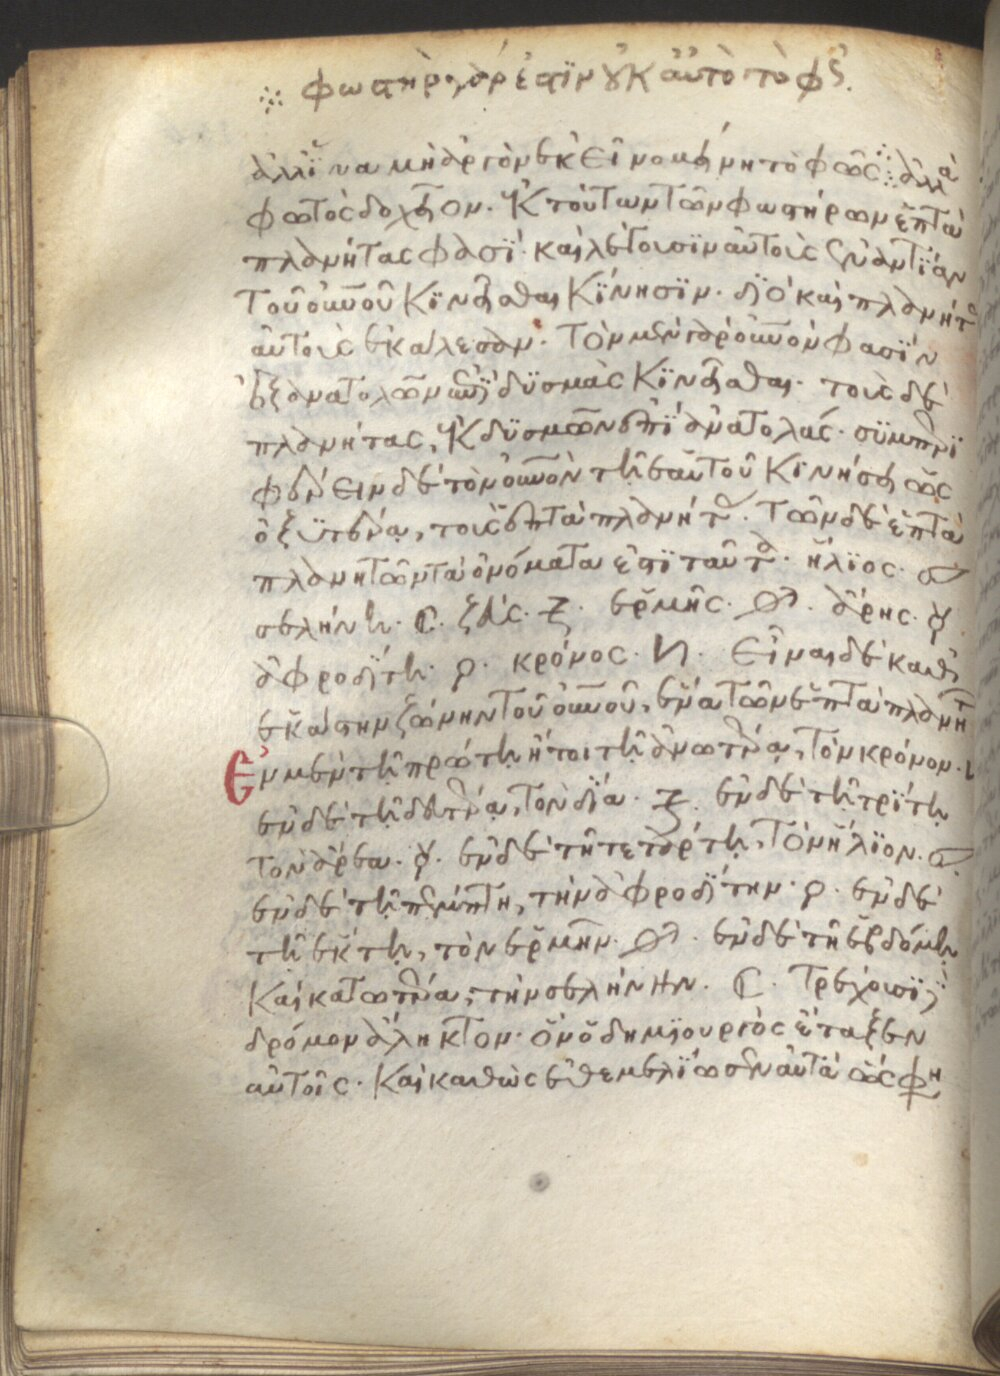 φωστὴρ γάρ ἐστιν οὐκ αὐτὸ τὸ φῶς.
ἀλλ' ἵνα μὴ ἀργὸν ἐκεῖνο μένῃ τὸ φῶς· ἀλλὰ
φωτὸς δοχεῖον. ἐκ τούτων τῶν φωστήρων ἑπτὰ
πλανήτας φασί· καὶ λέγουσιν αὐτοὺς ἐναντίαν
τοῦ οὐρανοῦ κινεῖσθαι κίνησιν· διὸ καὶ πλανήτας
αὐτοὺς ἐκάλεσαν. τὸν μὲν γὰρ οὐρανόν φασιν
ἐξ ἀνατολῶν ἐπὶ δυσμὰς κινεῖσθαι· τοὺς δὲ
πλανήτας, ἐκ δυσμῶν ἐπὶ ἀνατολάς· συμπερι
φέρειν δὲ τὸν οὐρανὸν τῇ ἑαυτοῦ κινήσει ὡς
ὀξυτέρᾳ, τοὺς ἑπτὰ πλανήτας. τῶν δὲ ἑπτὰ
πλανητῶν τὰ ὀνόματα εἰσὶ ταῦτα· ἥλιος.
σελήνη. ☾. ζεύς. ἑρμῆς. ἄρης.
ἀφροδίτη. κρόνος. εἶναι δὲ καθ'
ἑκάστην ζώνην τοῦ οὐρανοῦ, ἕνα τῶν ἑπτὰ πλανητῶν
Ἐν μὲν τῇ πρώτῃ ἤτοι τῇ ἀνωτέρᾳ, τὸν κρόνον.
ἐν δὲ τῇ δευτέρᾳ, τὸν δία. ἐν δὲ τῇ τρίτῃ
τὸν ἄρεα. ἐν δὲ τῇ τετάρτῃ, τὸν ἥλιον.
ἐν δὲ τῇ πέμπτῃ, τὴν ἀφροδίτην. ἐν δὲ
τῇ ἕκτῃ, τὸν ἑρμῆν. ἐν δὲ τῇ ἑβδόμῃ
καὶ κατωτέρᾳ, τὴν σελήνην. ☾. τρέχουσι δὲ
δρόμον ἄληκτον· ὃν ὁ δημιουργὸς ἔταξεν
αὐτοῖς. καὶ καθὼς ἐθεμελίωσεν αὐτὰ ὥς φη